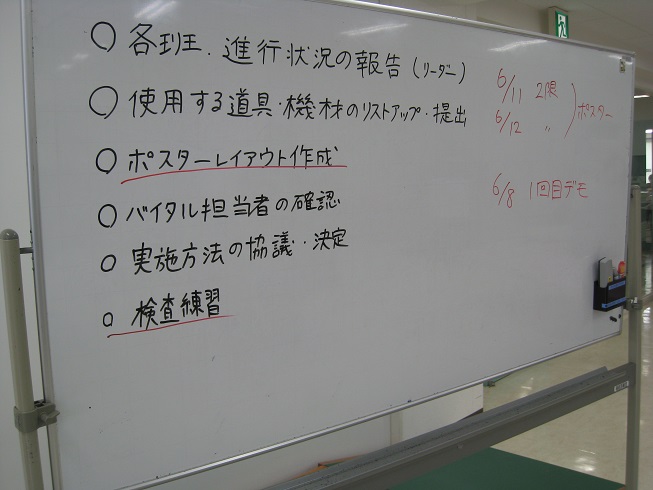 ○ 各班．進行状況の報告(リーダー)
○ 使用する道具・機材のリストアップ・提出
○ ポスターレイアウト作成
○ バイタル担当者の確認
○ 実施方法の協議・・決定
○ 検査練習
6/11 2限
6/12 〃
ポスター
6/8 1回目デモ